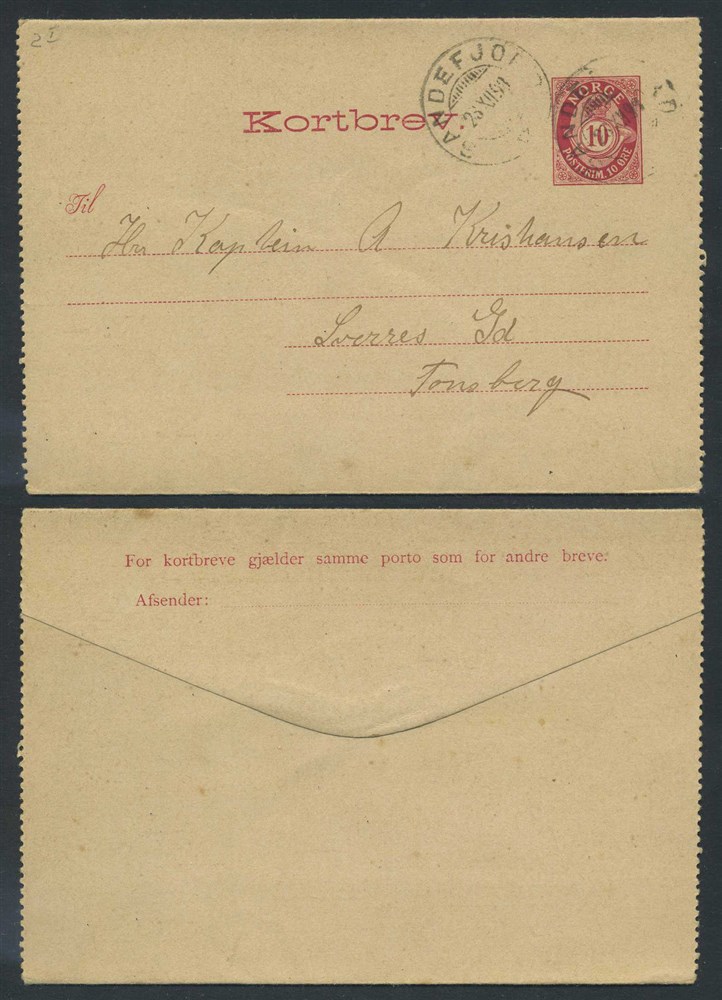 2 I
SANDEFJOR
NORGE
10
POSTFRIM. 10 ØRE
Kortbrev
Til
Hr Kaptein A Kristiansen
Sverres Gd
Tønsberg
For kortbreve gjælder samme porto som for andre breve.
Afsender: